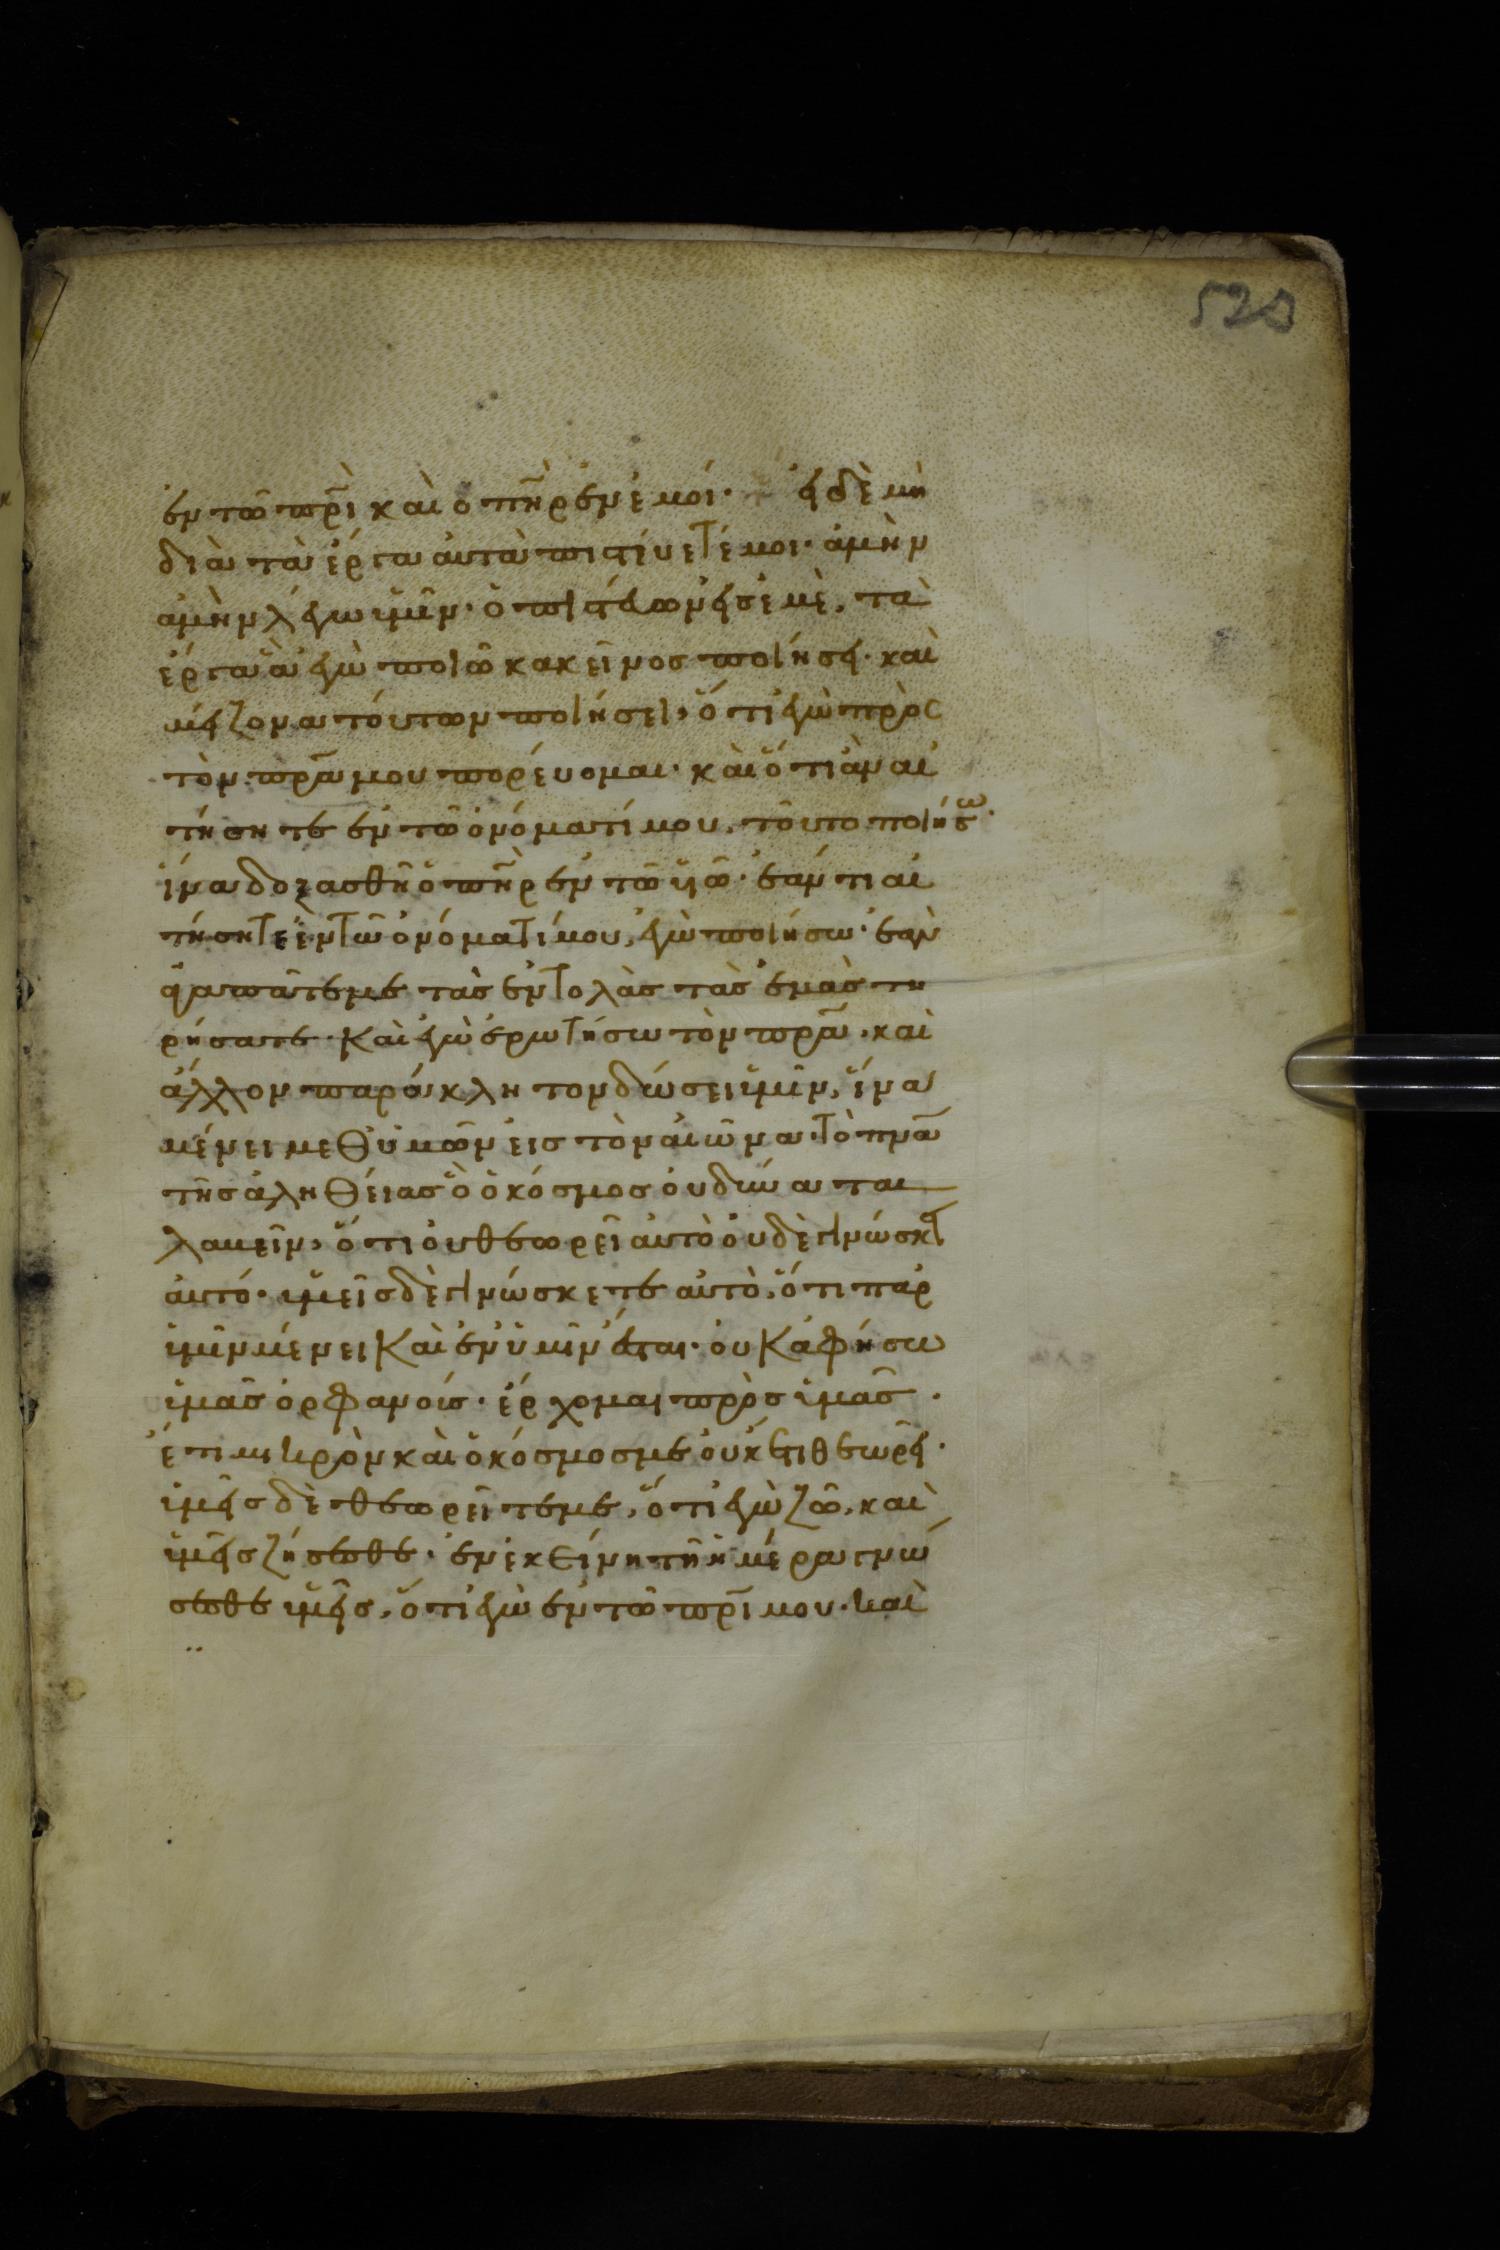 528
ἐν τῶ πρὶ καὶ ὁ πὴρ ἐν ἐμοί· εἰ δὲ μὴ
διὰ τὰ ἔργα αὐτὰ πιστεύετέ μοι· ἀμὴν
ἀμὴν λέγω ὑμῖν· ὁ πιστεύων εἰς ἐμὲ, τὰ
ἔργα ἃ ἐγὼ ποιῶ κακεῖνος ποιήσει· καὶ
μείζονα τούτων ποιήσει, ὅτι ἐγὼ πρὸς
τὸν πρα μου πορεύομαι· καὶ ὅτι ἂν αἰ
τήσητε ἐν τῶ ὀνόματί μου, τοῦτο ποιήσω·
ἵνα δοξασθῆ ὁ πὴρ ἐν τῶ υἱῶ· ἐάν τι αἰ
τήσητε ἐν τῶ ὀνόματί μου, ἐγὼ ποιήσω· ἐὰν
ἀγαπᾶτε με τὰς ἐντολὰς τὰς ἐμὰς τη
ρήσατε· Καὶ ἐγὼ ἐρωτήσω τὸν πρα, καὶ
ἄλλον παράκλητον δώσει ὑμῖν, ἵνα
μένει μεθ ὑμῶν εἰς τὸν αἰῶνα· τὸ πνα
τῆς ἀληθείας ὃ ὁ κόσμος οὐ δύναται
λαβεῖν, ὅτι οὐ θεωρεῖ αὐτὸ οὐδὲ γινώσκει
αὐτό· ὑμεῖς δὲ γινώσκετε αὐτὸ, ὅτι παρ
ὑμῖν μένει Καὶ ἐν ὑμῖν ἔσται· οὐΚ ἀφήσω
ὑμᾶς ὀρφανούς· ἔρχομαι πρὸς ὑμᾶς·
ἔτι μικρὸν καὶ ὁ κόσμος με οὐκ ἔτι θεωρεῖ·
ὑμεῖς δὲ θεωρεῖτε με, ὅτι ἐγὼ ζῶ, καὶ
ὑμεῖς ζήσεσθε· ἐν ἐκείνη τῆ ἡμέρα γνώ
σεσθε ὑμεῖς, ὅτι ἐγὼ ἐν τῶ πρι μου· καὶ